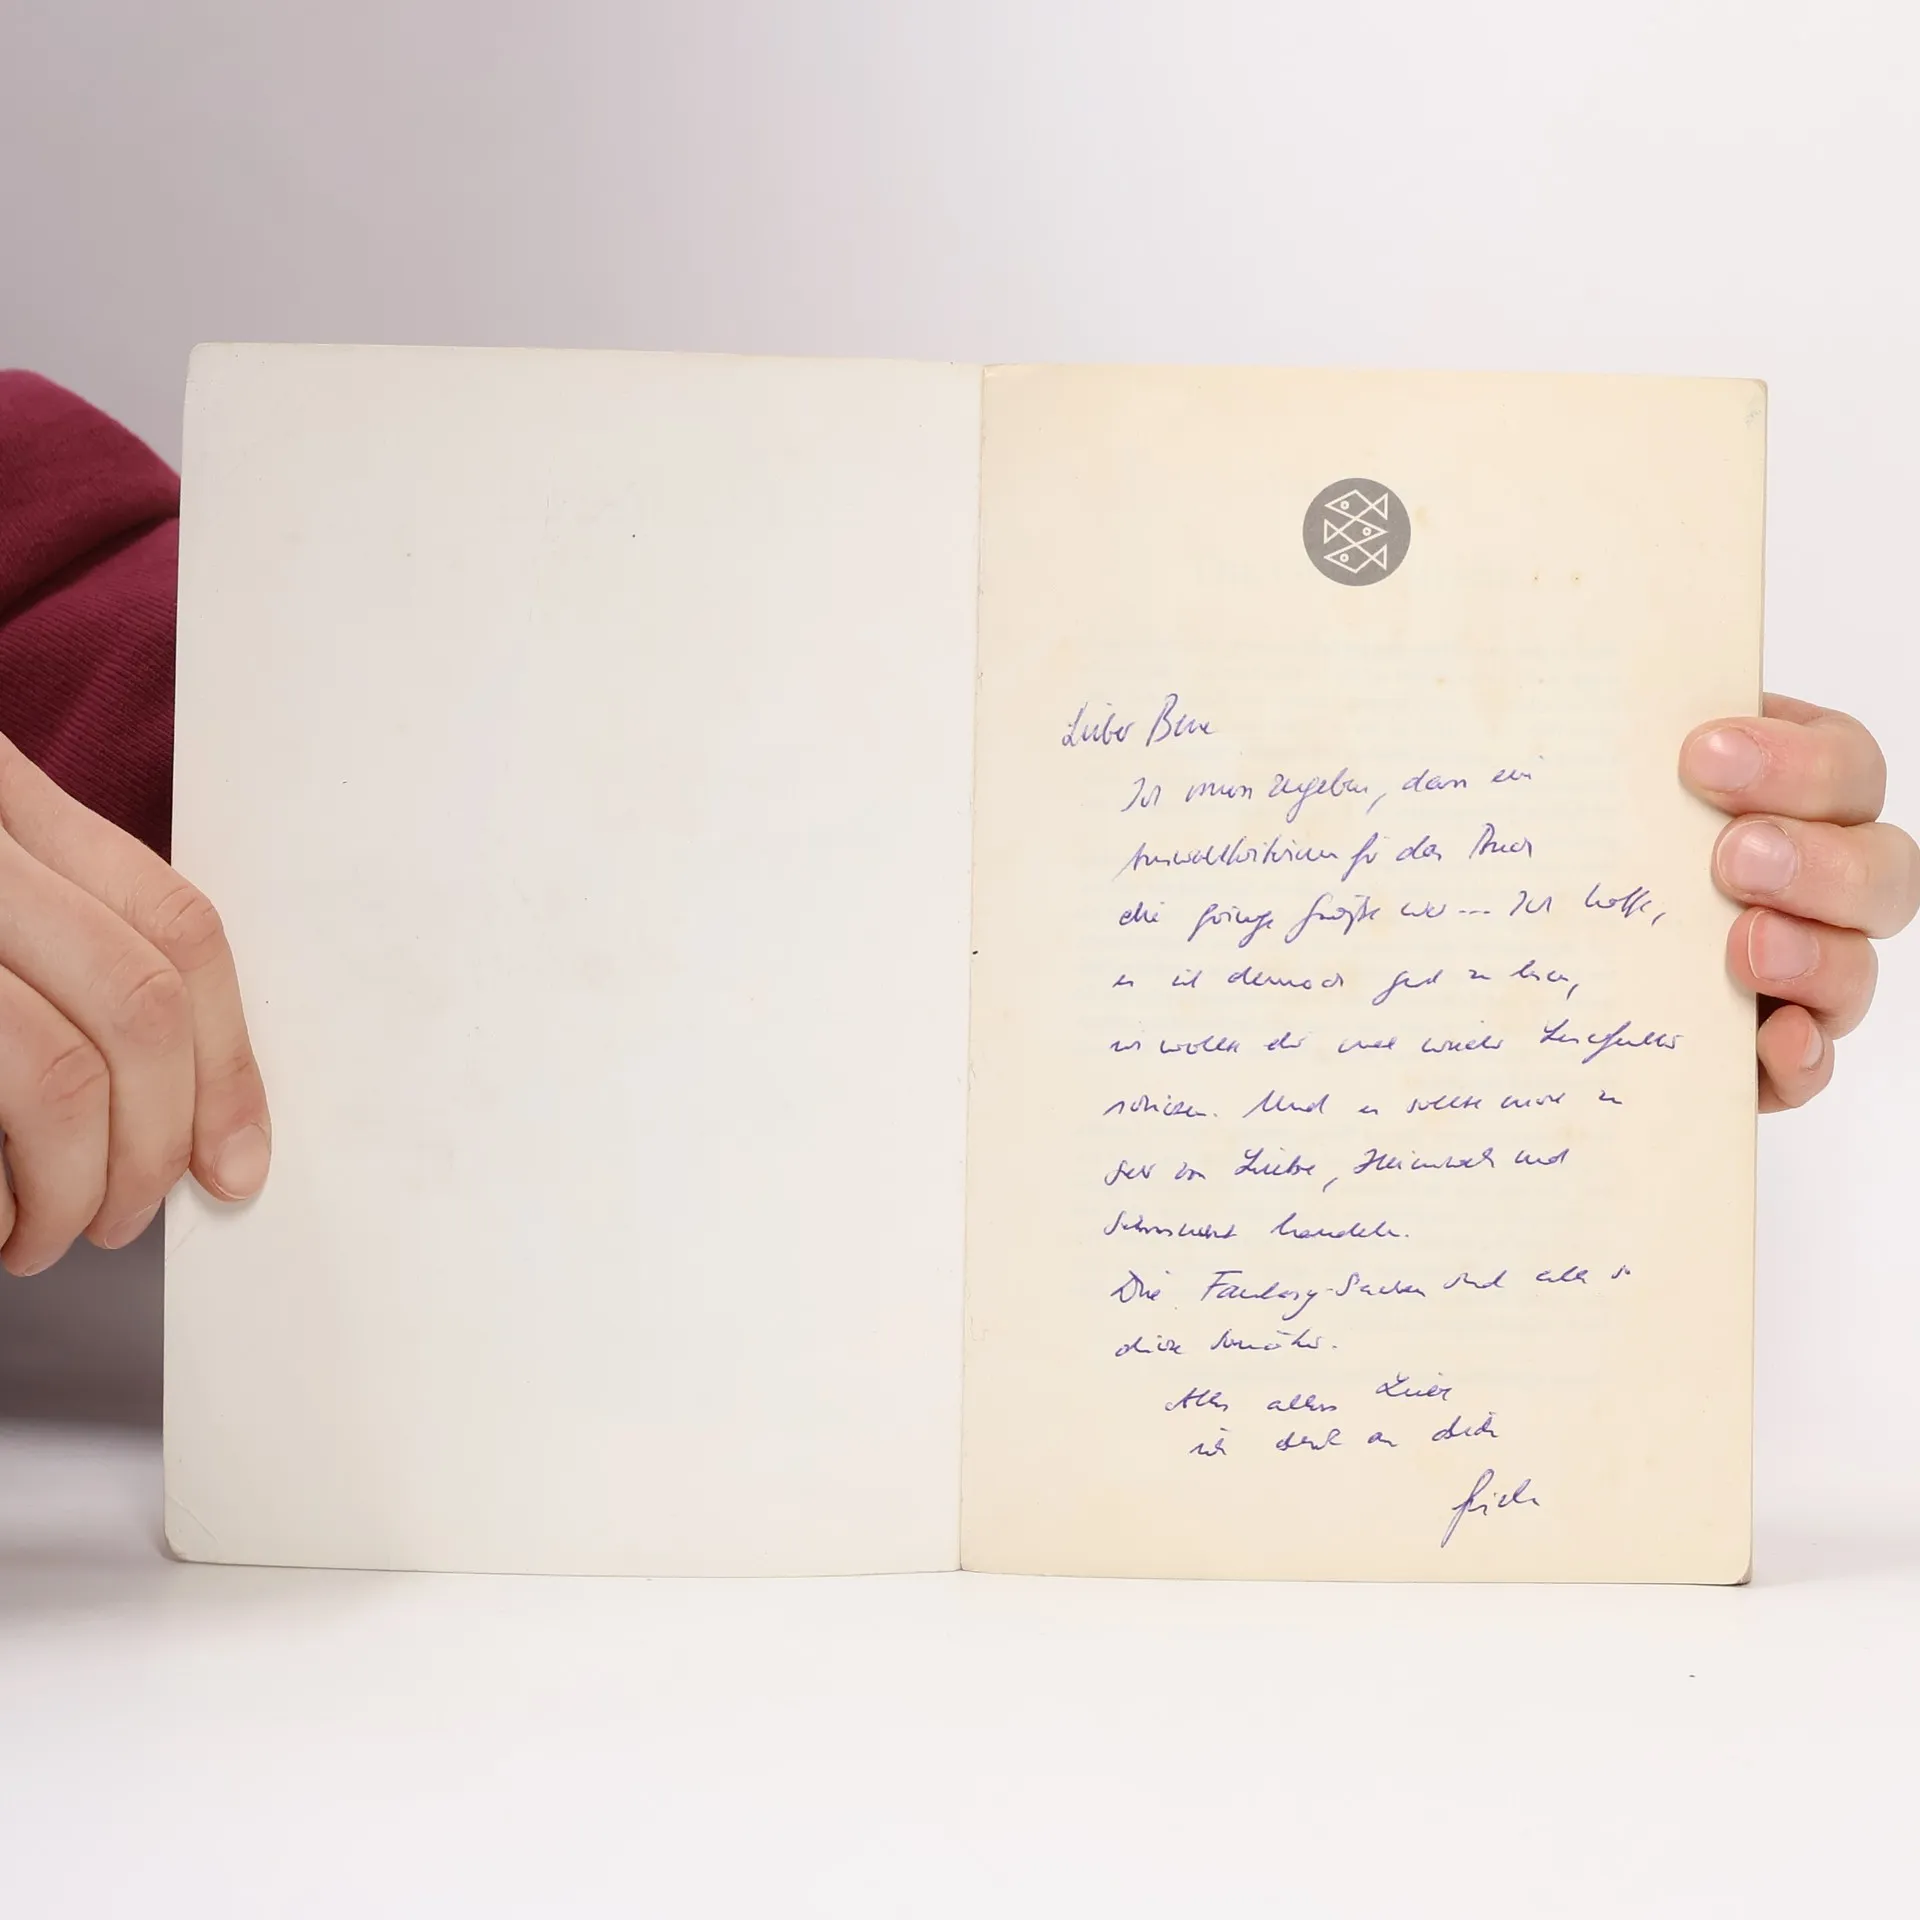 Lieber Bene
Ich muss zugeben, dass ein
Auswahlkriterium für das Buch
die geringe Größe war... Ich hoffe,
es ist dennoch gut zu lesen,
ich wollte dir mal wieder Lesefutter
schicken. Und es sollte mal zu
von Liebe, Heimweh und
Sehnsucht handeln.
Die Fantasy-Sachen sind alle so
dicke
Alles alles Liebe
ich denk an dich